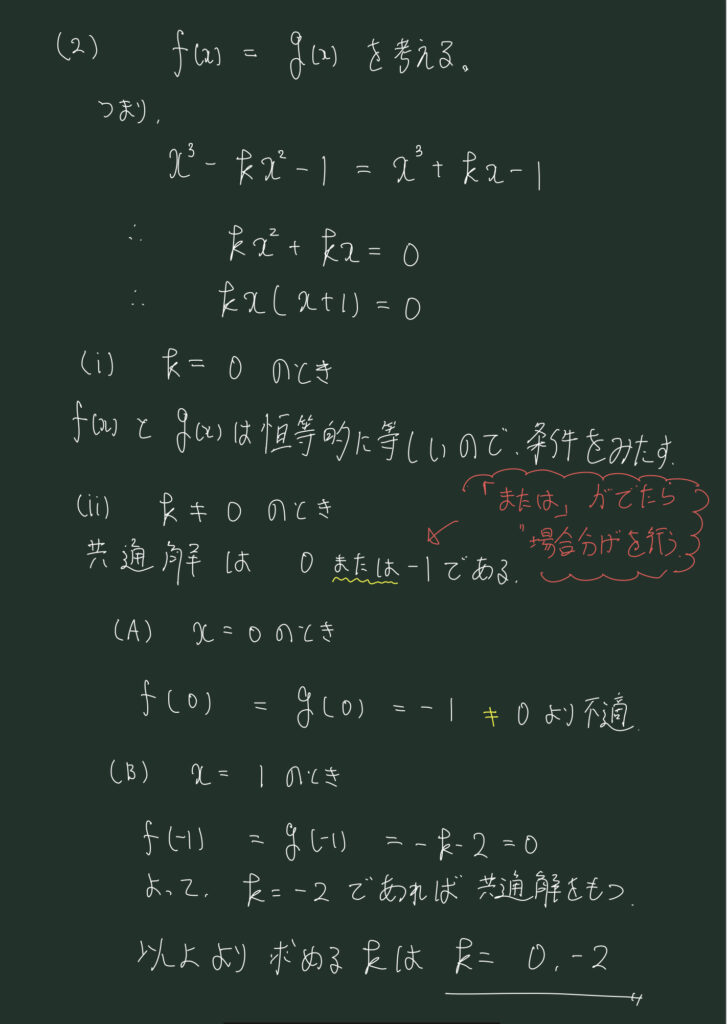 (2) f(x) = g(x) を考える。
つまり,
x³ - kx² - 1 = x³ + kx - 1
∴ kx² + kx = 0
∴ kx(x+1) = 0
(i) k = 0 のとき
f(x) と g(x) は恒等的に等しいので、条件をみたす.
(ii) k ≠ 0 のとき
「または」がでたら
場合分けを行う.
共通解は 0 または -1 である.
(A) x = 0 のとき
f(0) = g(0) = -1 ≠ 0 より不適.
(B) x = 1 のとき
f(-1) = g(-1) = -k-2 = 0
よって, k = -2 であれば共通解をもつ.
以上より求める k は k = 0, -2